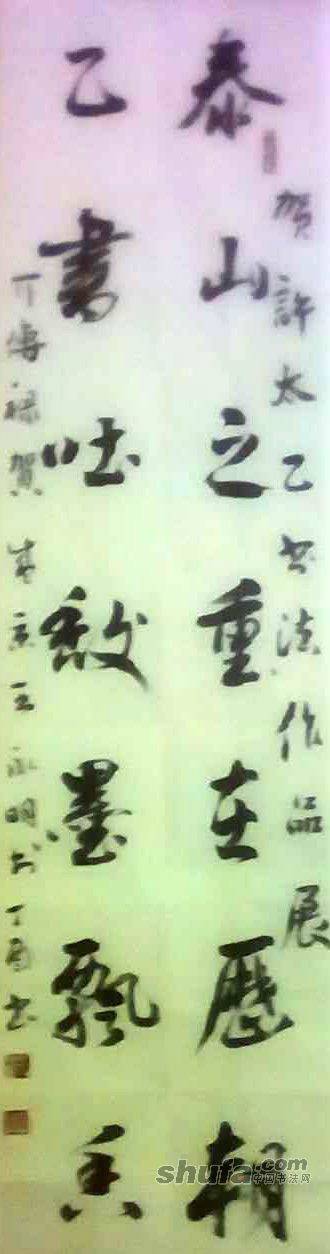 賀許太乙书法作品展
泰山之重在歷朝
乙書吐
墨飄香
丁傳祿賀
王永明书丁酉
shufa.com
中国书法网